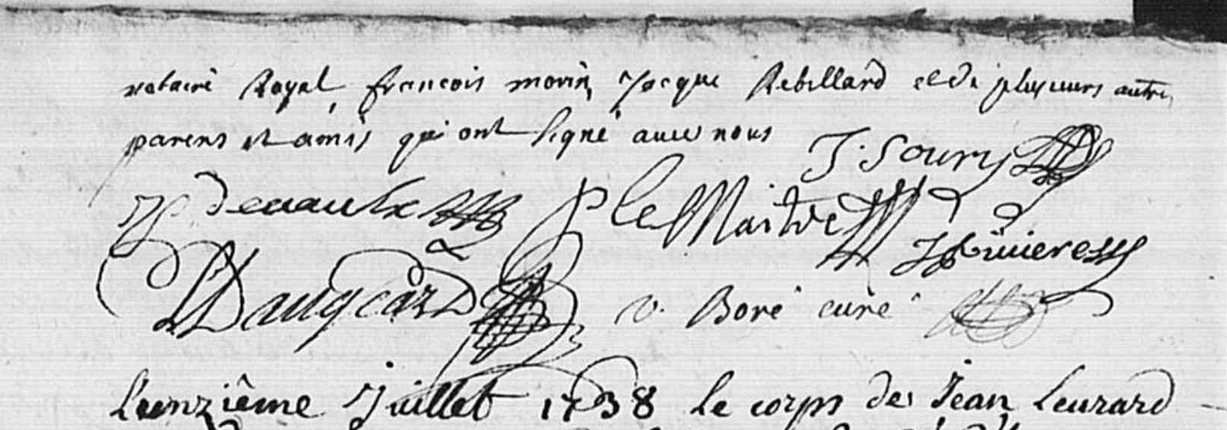 notaire Royal, francois morin, Jacque Rebillard et de plusieurs autres
parens et amis qui ont signé avec nous J. Soury
devaulx P le Maitre
J Riviere
Daugeard v. Boré curé
L'unzième Juillet 1738 le corps de Jean Leurard